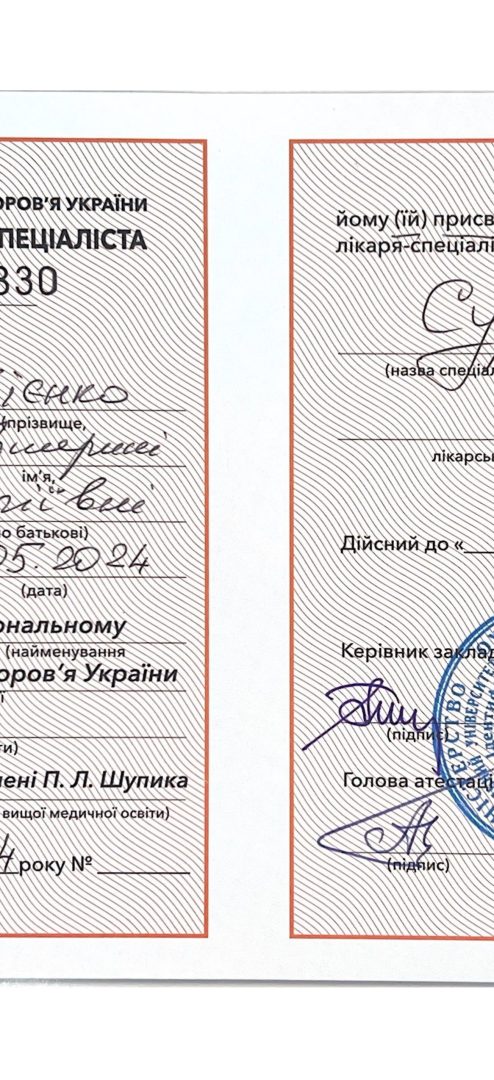 ОРОВ'Я УКРАЇНИ
ПЕЦІАЛІСТА
330
ієнко
прізвище,
ім'я,
ївні
о батькові)
05.2024
(дата)
ональному
(найменування
оров'я України
ї
ти)
мені П. Л. Шупика
вищої медичної освіти)
4 року №
йому (їй) присв
лікаря-спеціалі
Су
(назва спеціал
лікарсь
Дійсний до «
Керівник заклад
(підпис)
Голова атестаці
(підпис)